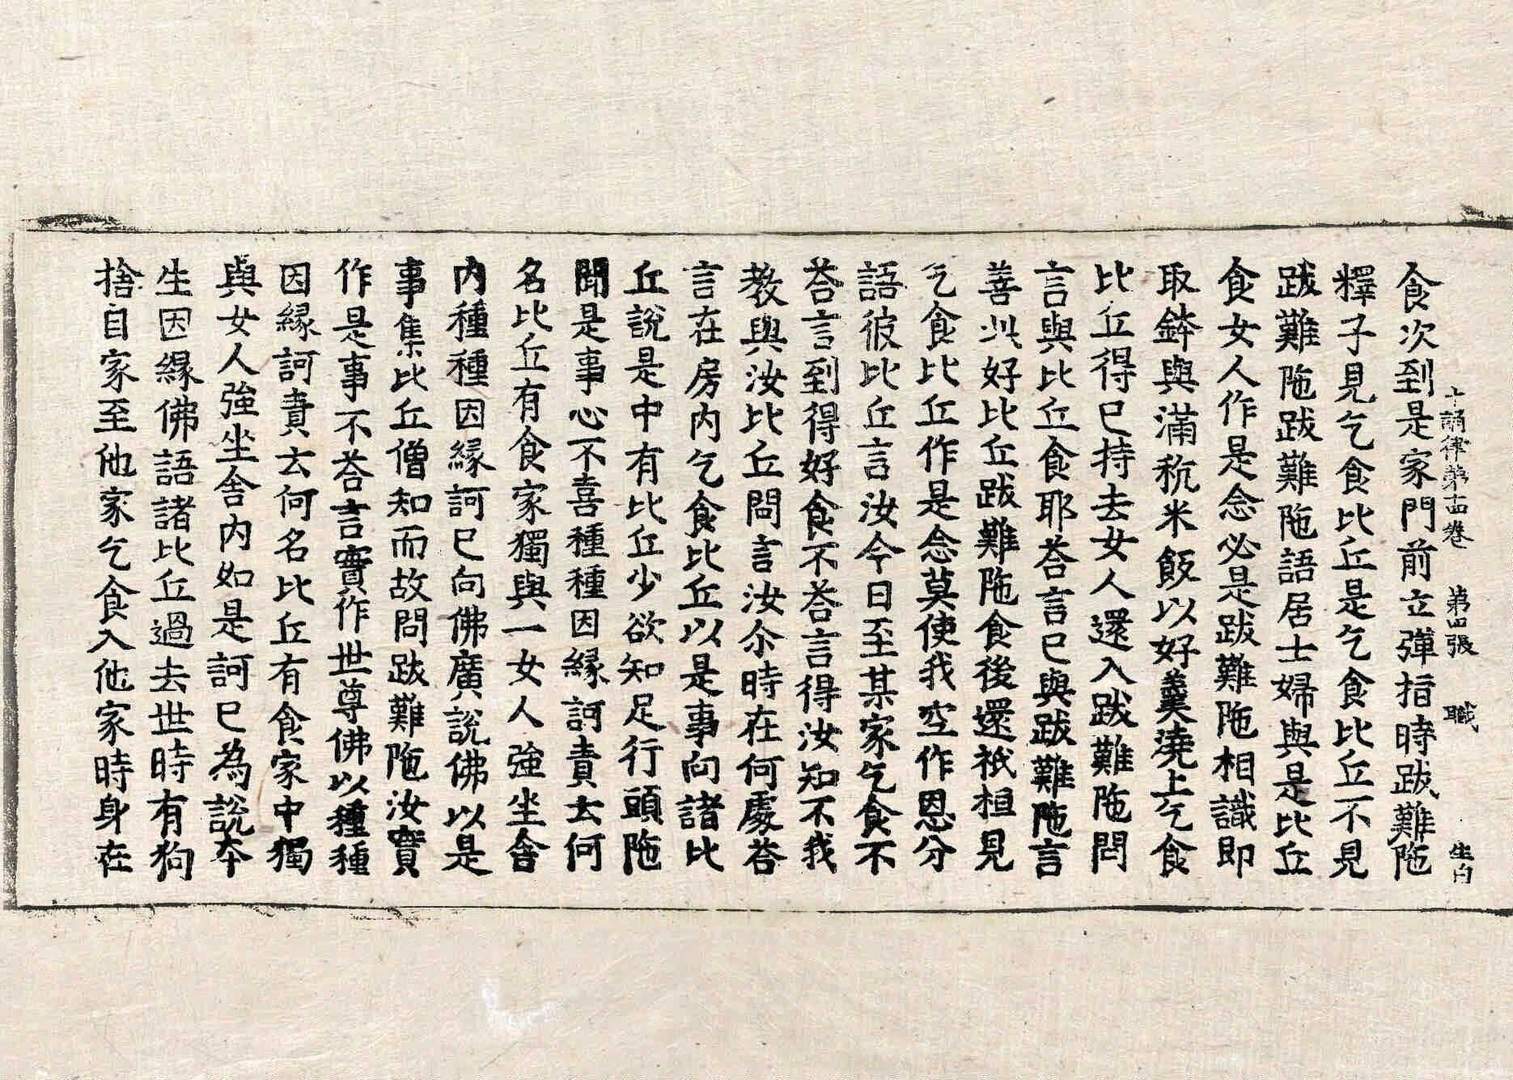 十誦律第十四卷　第四張　職　生白
食次到是家門前立彈指時跋難陁
釋子見乞食比丘是乞食比丘不見
跋難陁跋難陁語居士婦與是比丘
食女人作是念必是跋難陁相識即
取鉢與滿秔米飯以好羹澆上乞食
比丘得已持去女人還入跋難陁問
言與比丘食耶荅言已與跋難陁言
善以好比丘跋難陁食後還祇桓見
乞食比丘作是念莫使我空作恩分
語彼比丘言汝今日至某家乞食不
荅言到得好食不荅言得汝知不我
教與汝比丘問言汝尒時在何處荅
言在房內乞食比丘以是事向諸比
丘說是中有比丘少欲知足行頭陁
聞是事心不喜種種因緣訶責云何
名比丘有食家獨與一女人強坐舍
內種種因緣訶已向佛廣說佛以是
事集比丘僧知而故問跋難陁汝實
作是事不荅言實作世尊佛以種種
因緣訶責云何名比丘有食家中獨
與女人強坐舍內如是訶已為說夲
生因緣佛語諸比丘過去世時有狗
捨自家至他家乞食入他家時身在